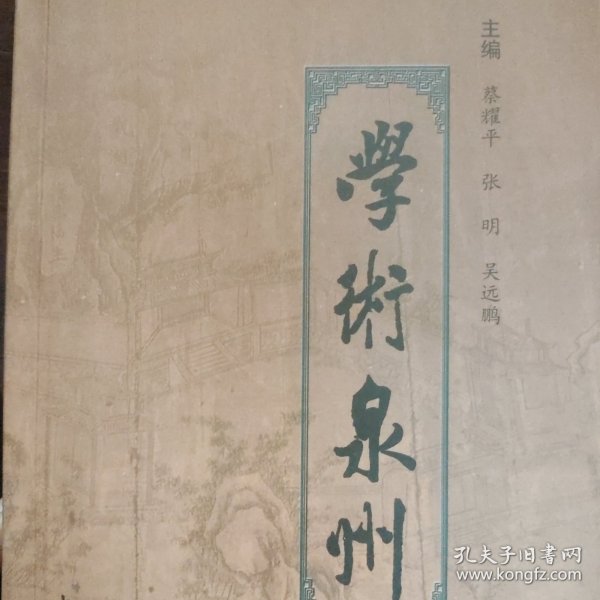 主编 蔡耀平 张 明 吴远鹏
學術泉州
孔夫子旧书网
www.kongfz.com